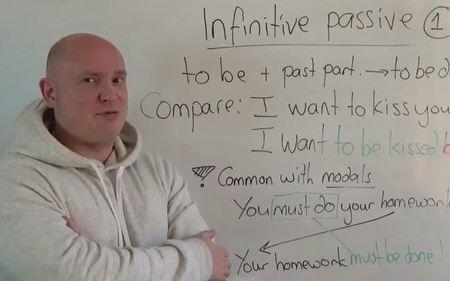 Infinitive passive 1
to be + past part. → to be d
Compare: I want to kiss you
I want to be kissed b
Common with modals
You must do your homework
Your homework must be done!